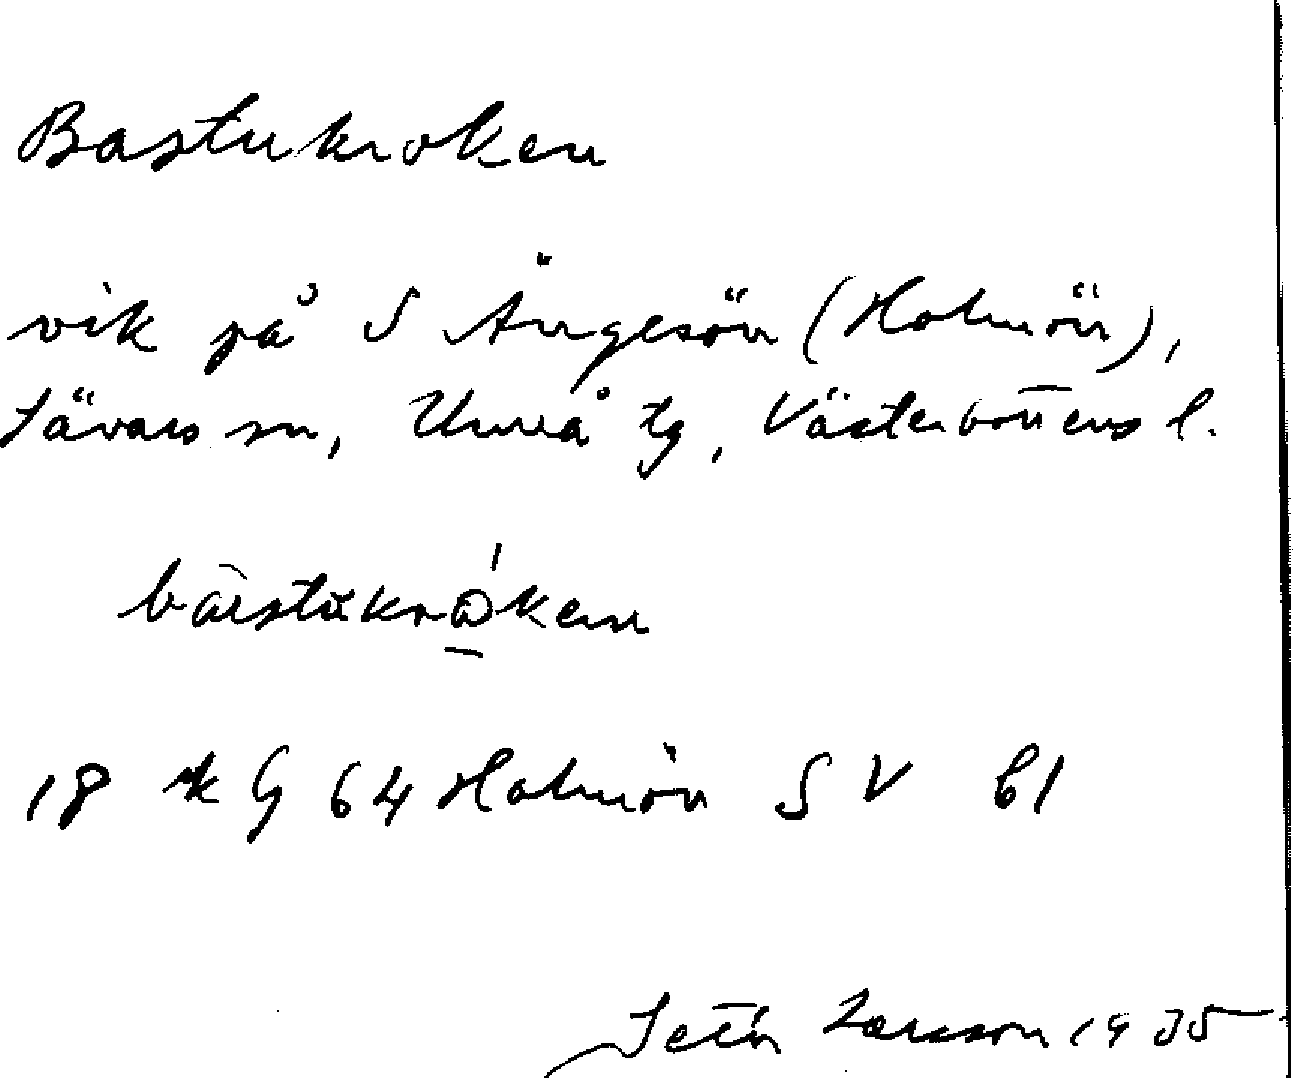 Bastukroken
vik på S Ängesön (Holmön),
Sävars sn, Umeå tg, Västerbottens l.
18 k G 64 Holmön SV 61
Seth Larsson 1935